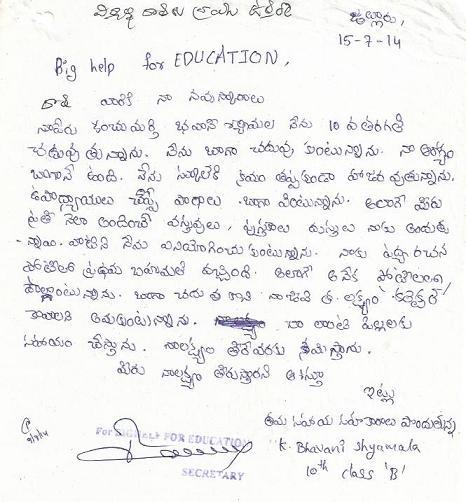 విద్యార్థి దాతలకు వ్రాయు ఉత్తరం
ఉల్లూరు,
15-7-14
Big help for EDUCATION,
దాత వారికి నా నమస్కారాలు
నాపేరు కంచుమర్తి భవాని శ్యామల నేను 10 వ తరగతి
చదువుతున్నాను. నేను బాగా చదువుకుంటున్నాను. నా ఆరోగ్యం
బాగానే ఉంది. నేను స్కూలుకి క్రమం తప్పకుండా హాజరవుతున్నాను.
ఉపాధ్యాయులు చెప్పే పాఠాలు బాగా వింటున్నాను. అలాగే మీరు
ప్రతి నెలా అందించే వస్తువులు, పుస్తకాలు దుస్తులు నాకు అందుతు
న్నాయి. వాటిని నేను వినియోగించుకుంటున్నాను. నాకు వ్యాసరచన
పోటీలో ప్రథమ బహుమతి వచ్చింది. అలాగే అనేక పోటీలలో
పాల్గొంటున్నాను. బాగా చదువుకొని నా జీవిత లక్ష్యం కలెక్టర్
కావాలని అనుకుంటున్నాను. నా లాంటి పిల్లలకు
సహాయం చేస్తాను. నా లక్ష్యం తీరేవరకు శ్రమిస్తాను.
మీరు నా లక్ష్యం తీరుస్తారని ఆశిస్తూ
ఇట్లు
తమ సహాయ సహకారాలు పొందుతున్న
For BIG HELP FOR EDUCATION
K. Bhavani Shyamala
SECRETARY
10th class 'B'